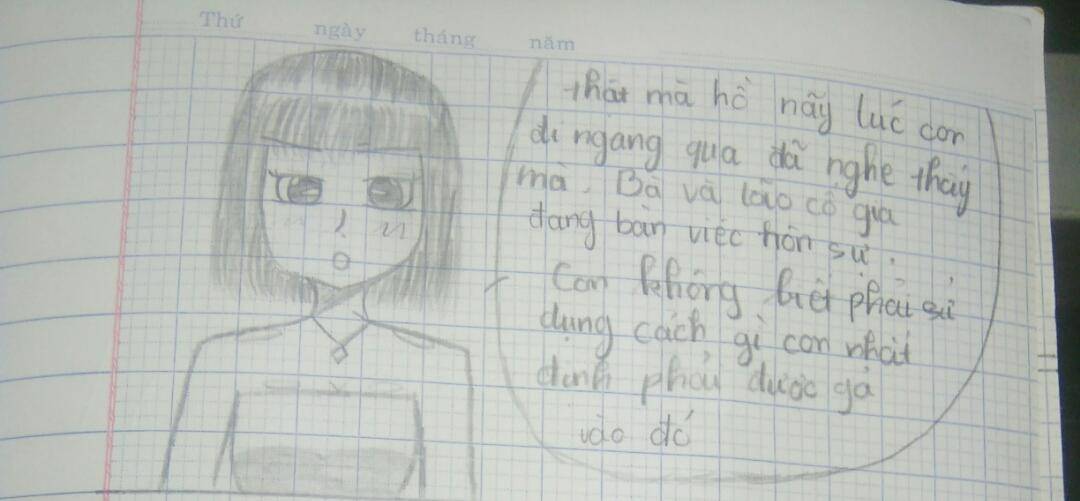 Thứ ngày tháng năm
thật mà hồ nãy lúc con
đi ngang qua đã nghe thấy
mà. Bà và lão cố gia
đang bàn việc hôn sự.
Con không biết phải sử
dụng cách gì con nhất
định phải được gả
vào đó